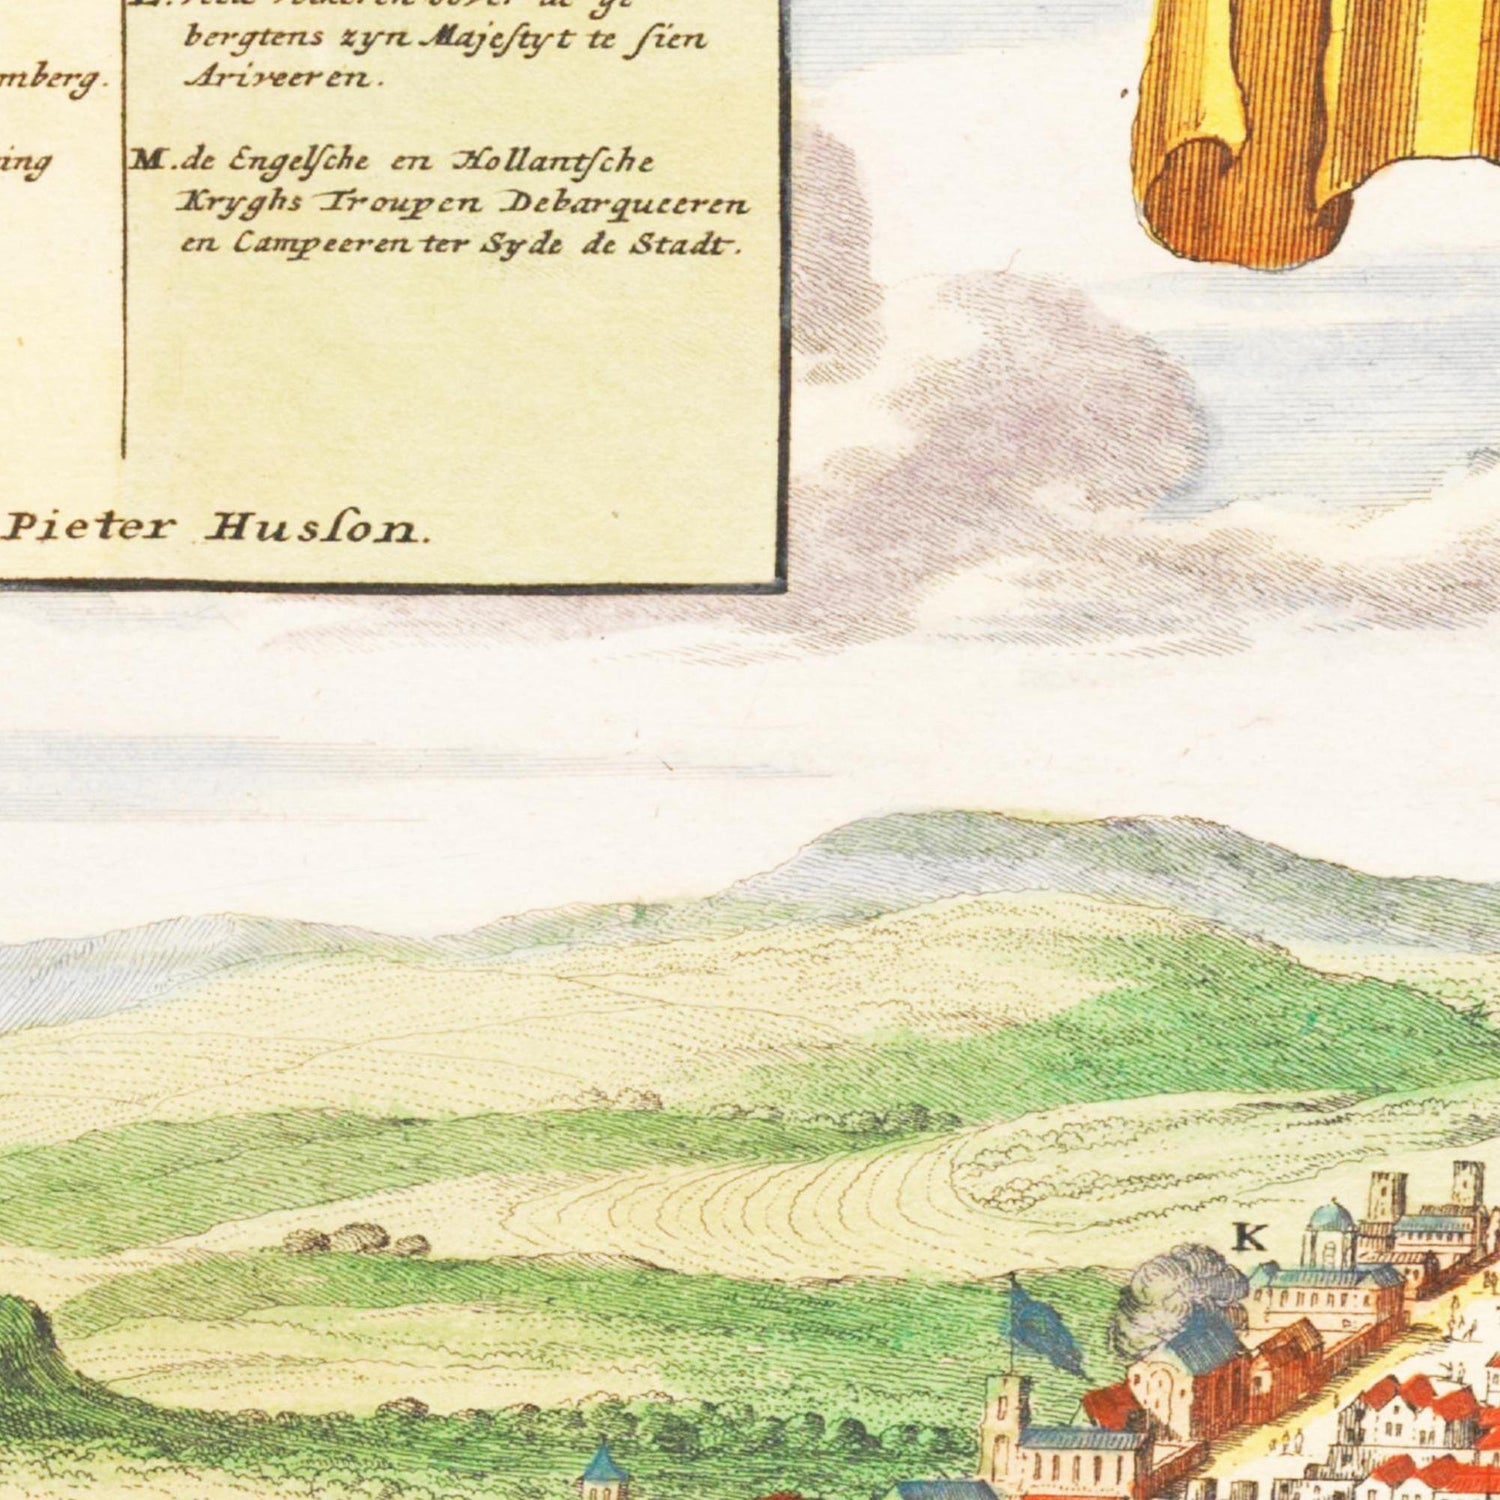 bergtens zyn Majeſtyt te ſien
mberg. Ariveeren.
ing M. de Engelſche en Hollantſche
Kryghs Troupen Debarqueeren
en Campeeren ter Syde de Stadt.
Pieter Husſon.
K